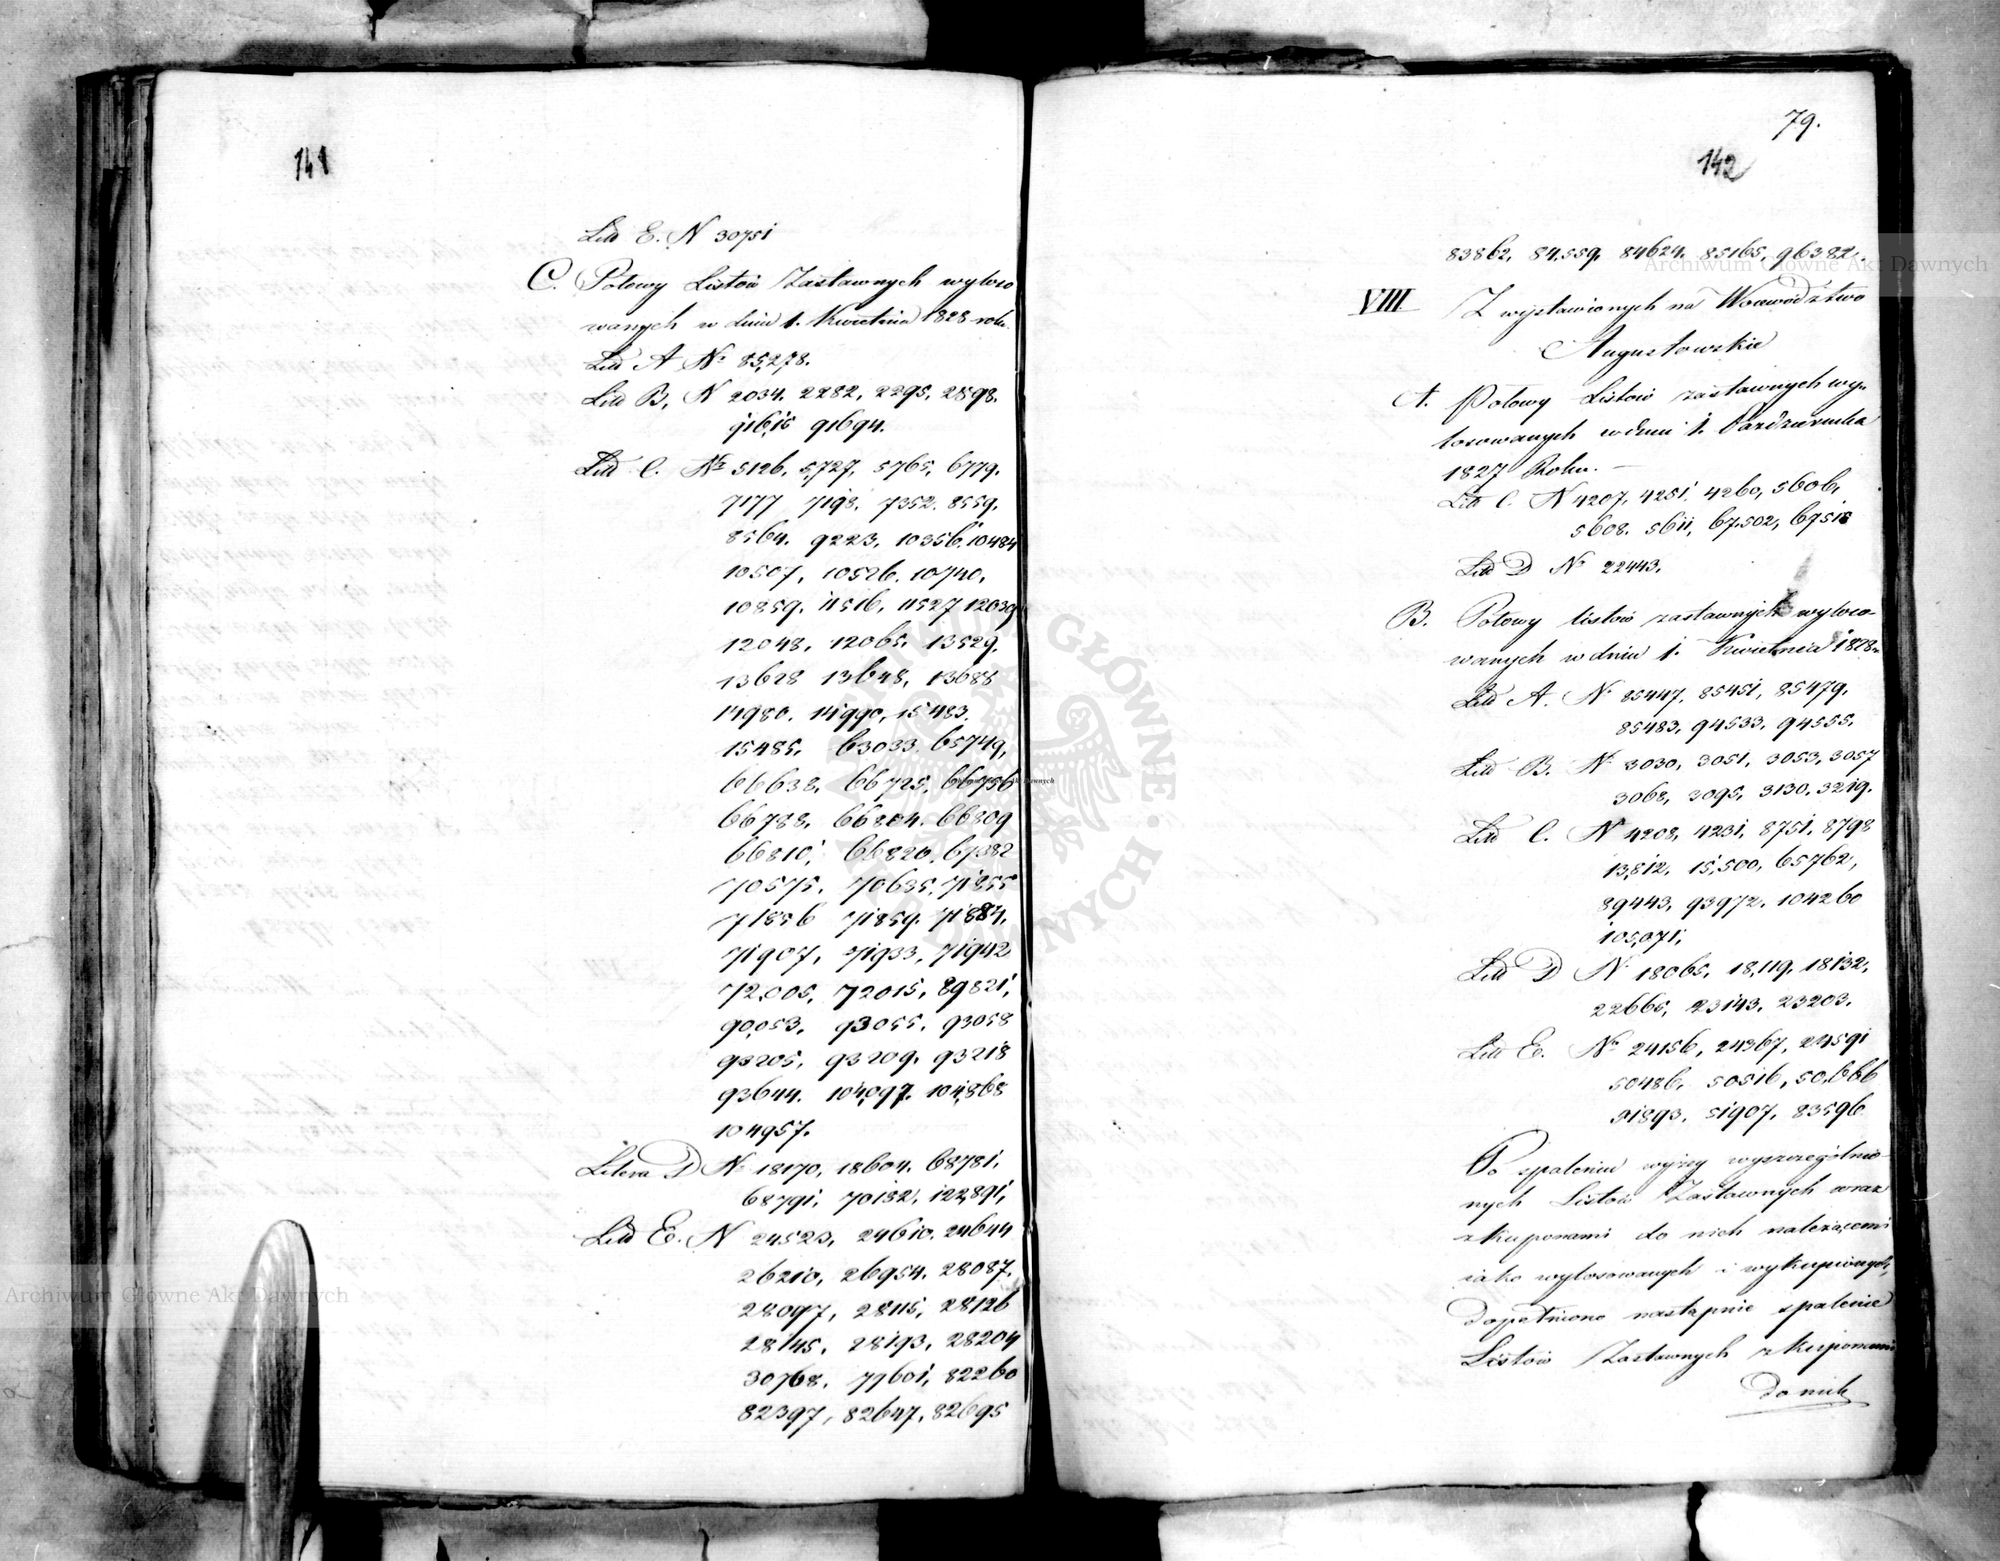 141
Litt E. N 30751
C. Połowy Listów Zastawnych wyloso
wanych w dniu 1. Kwietnia 1828 roku.
Litt A Nr 85,278.
Litt B. N 2034. 2282, 2295, 2898.
91615 91694.
Litt C. Nr 5126, 5,727, 5765, 6779.
7177 7198. 7352. 8559.
8564. 9223, 10356. 10484
10507, 10526. 10740,
10859. 11516, 11527 12039
12048, 12065. 13529,
13628 13648, 13688
14980. 14990, 15483.
15485. 63033. 65749,
66638, 66725, 66756
66788, 66804. 66809
66810, 66826, 67382
70575. 70635, 71855
71856 71859. 71884,
71907, 71933, 71942
72,005, 72015, 89821,
90,053, 93055. 93058
93205, 93209. 93218
93644. 104,097. 104,868
104957.
Litera D N 18170, 18604, 68781,
68791, 70132, 122,891,
Litt E. N 24523, 24610. 24644
26210, 26954. 28087,
28097, 28115, 28126
28145, 28193, 28204
30768, 77601, 82260
82397, 82647, 82695
79.
142
83862, 84,559, 84624, 85165, 96382.
VIII. Z wystawionych na Woiewództwo
Augustowskie
A. Połowy Listów zastawnych wy-
losowanych w dniu 1. Pazdziernika
1827 Roku. —
Litt C. N 4207, 4251, 4260, 5606,
5608. 5611, 67,502, 69515
Litt D Nr 22443.
B. Połowy listów zastawnych wyloso-
wanych w dniu 1. Kwietnia 1828 r.
Litt A. N 85447, 85451, 85479.
85483, 94533, 94555.
Litt B. N 3030, 3051, 3053, 3057
3068, 3095, 3130, 3219.
Litt C. N 4208, 4231, 8751, 8798
13,812, 15,500, 65762,
89443, 93972, 104260
105,071,
Litt D N 18065, 18,119, 18132,
22665, 23143, 23203.
Litt E. Nr 24156, 24367, 24591
50486, 50516, 50,666
51893, 51907, 83596
Po spaleniu wyżey wyszczególnio-
nych Listów Zastawnych wraz
z kuponami do nich należącemi
iako wylosowanych i wykupionych,
dopełniono nastąpnie spalenie
Listów Zastawnych z kuponami
do nich
Archiwum Główne Akt Dawnych
Archiwum Główne Akt Dawnych